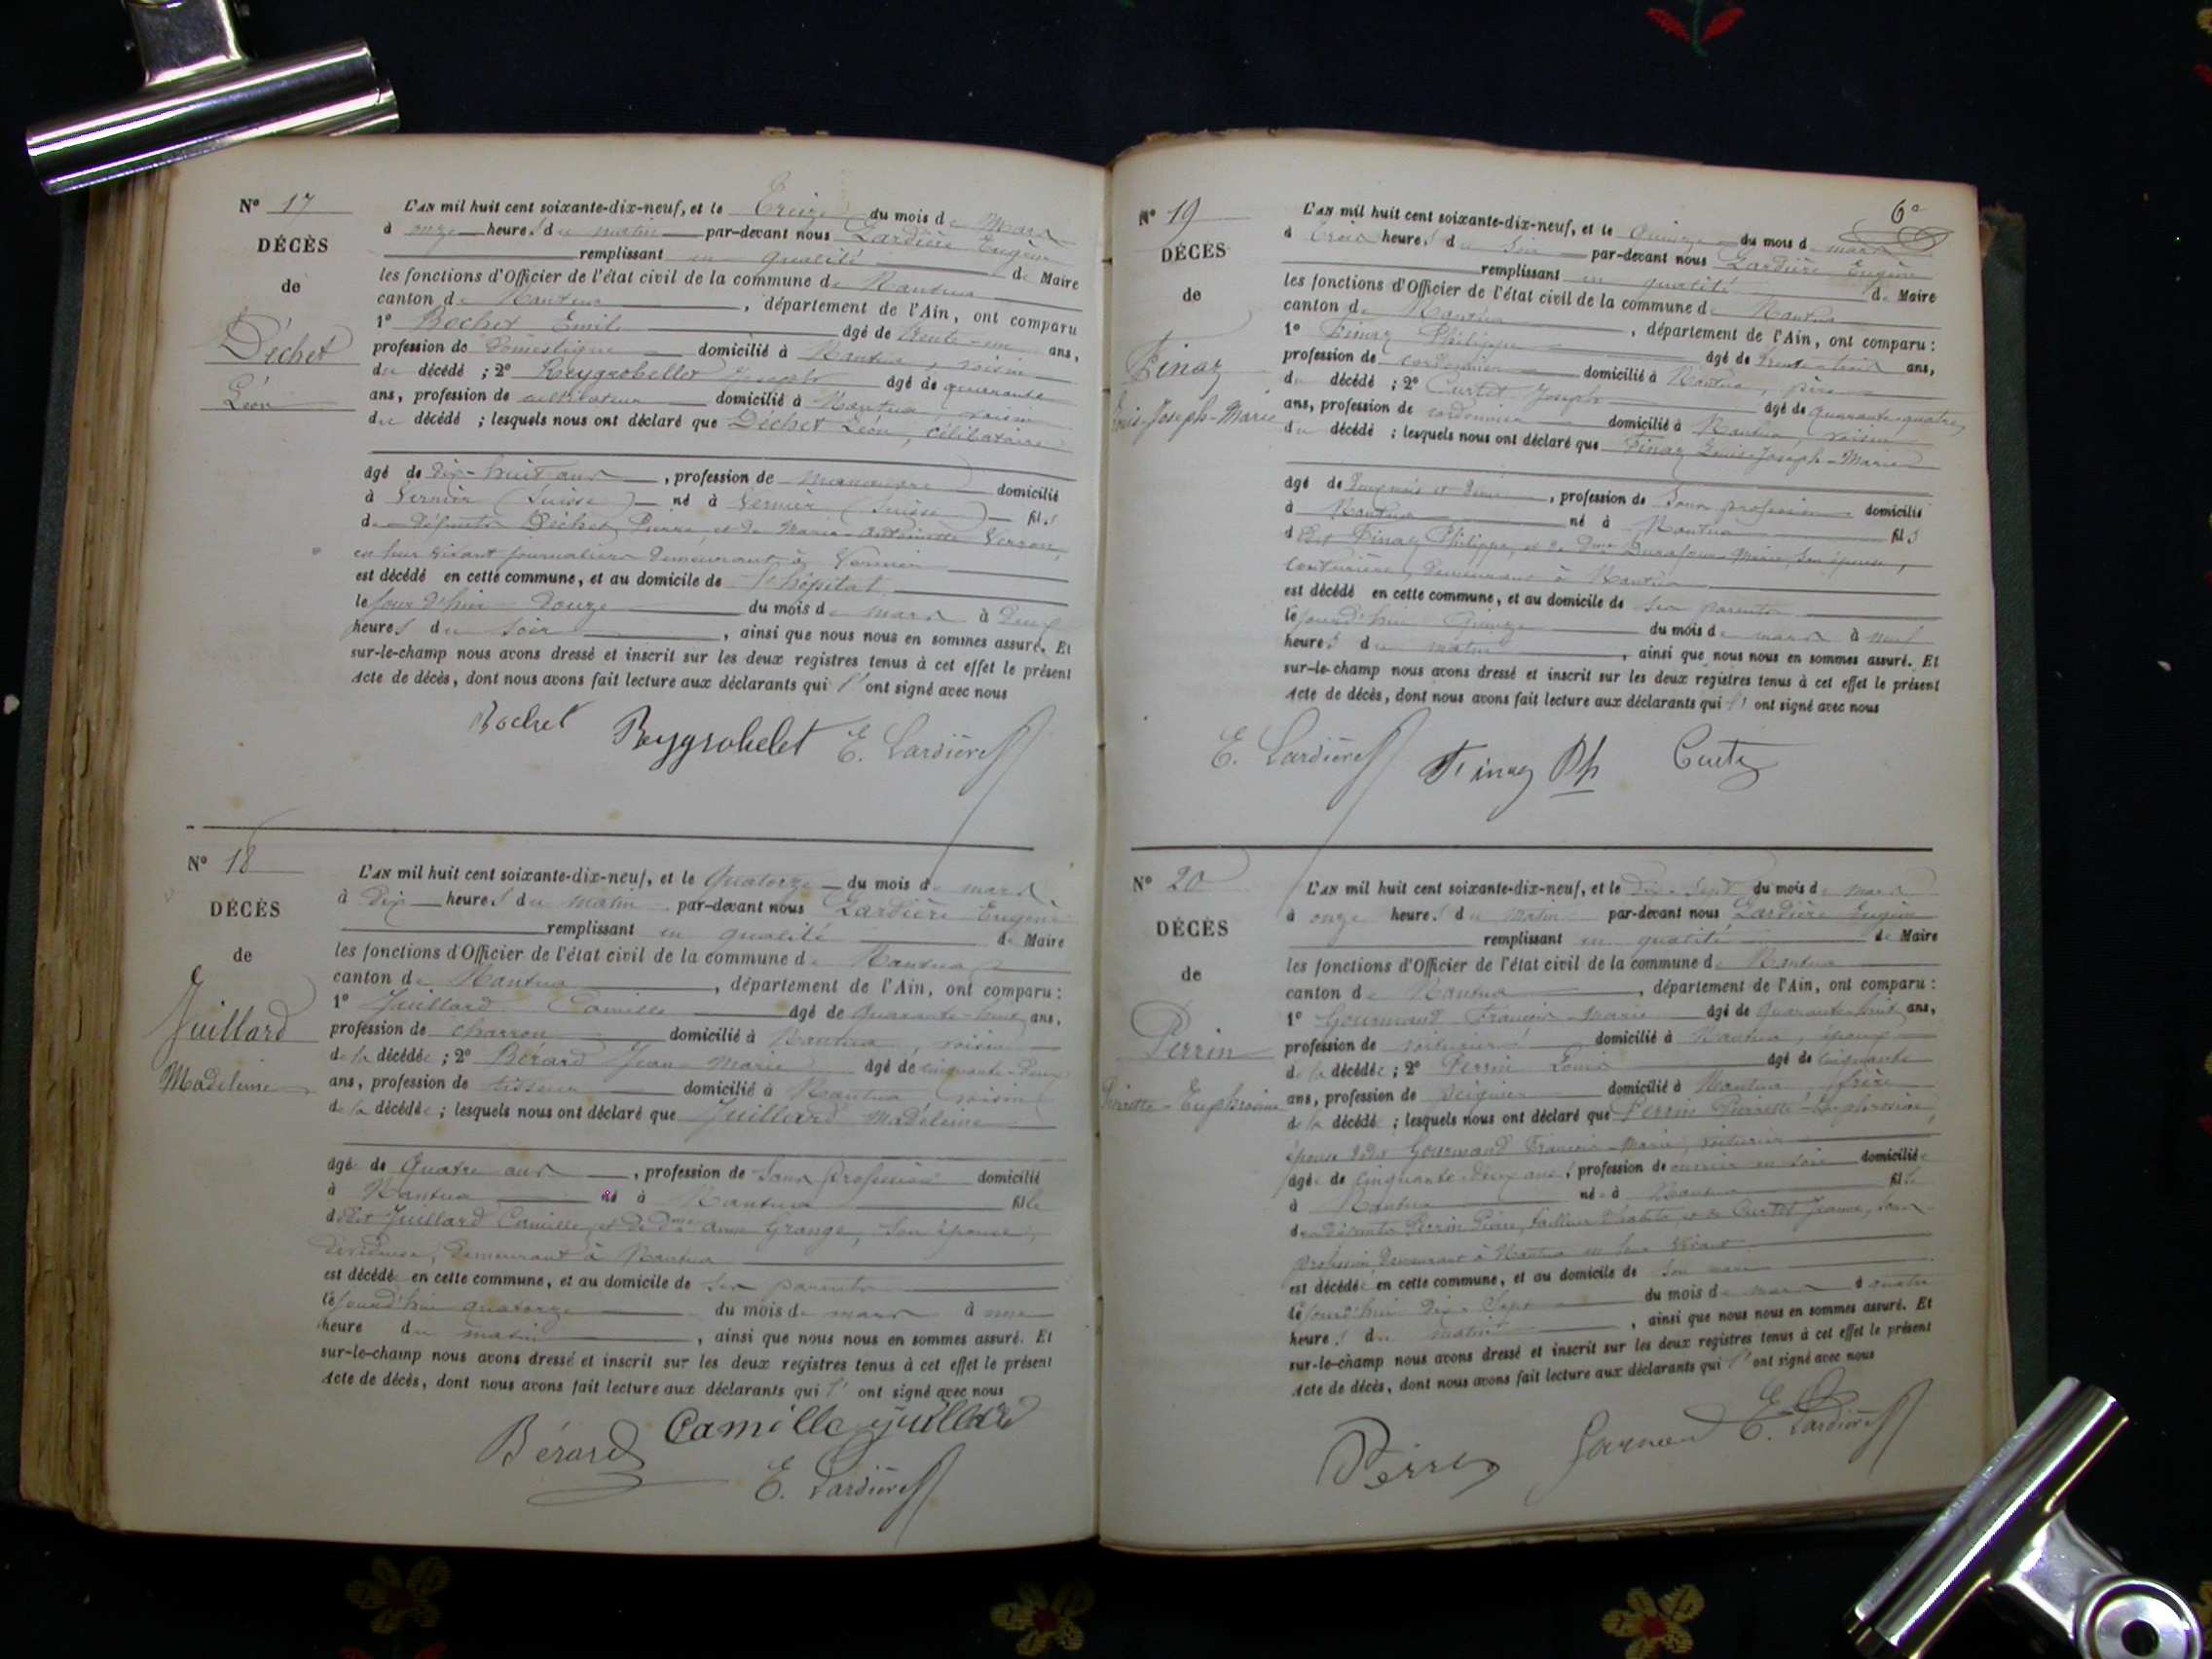 N° 17
DÉCÈS
de
Déchet
Léon
L'AN mil huit cent soixante-dix-neuf, et le Treize du mois de Mars
à onze heures du matin par-devant nous Lardière Eugène
remplissant en qualité de Maire
les fonctions d'Officier de l'état civil de la commune de Nantua
canton de Nantua, département de l'Ain, ont comparu
1° Bochet Emile âgé de trente-un ans,
profession de domestique domicilié à Nantua, voisin
du décédé ; 2° Reygrobellet Joseph âgé de quarante
ans, profession de cultivateur domicilié à Nantua, voisin
du décédé ; lesquels nous ont déclaré que Déchet Léon, célibataire
âgé de dix-huit ans, profession de manœuvre domicilié
à Vernier (Suisse) né à Vernier (Suisse) fils
de défunts Déchet Pierre, et de Marie-Antoinette Verron,
en leur vivant journaliers demeurant à Vernier
est décédé en cette commune, et au domicile de l'hôpital
le jour d'hier douze du mois de mars à deux
heures du soir, ainsi que nous nous en sommes assuré. Et
sur-le-champ nous avons dressé et inscrit sur les deux registres tenus à cet effet le présent
Acte de décès, dont nous avons fait lecture aux déclarants qui l'ont signé avec nous
Bochet Reygrobelet E. Lardière
N° 18
DÉCÈS
de
Juillard
Madeleine
L'AN mil huit cent soixante-dix-neuf, et le Quatorze du mois de mars
à Dix heures du matin par-devant nous Lardière Eugène
remplissant en qualité de Maire
les fonctions d'Officier de l'état civil de la commune de Nantua
canton de Nantua, département de l'Ain, ont comparu :
1° Juillard Camille âgé de quarante-huit ans,
profession de charron domicilié à Nantua, voisin
de la décédée ; 2° Bérard Jean Marie âgé de cinquante-deux
ans, profession de tisseur domicilié à Nantua, voisin
de la décédée ; lesquels nous ont déclaré que Juillard Madeleine
âgée de Quatre ans, profession de Sans profession domicilié
à Nantua né à Nantua fille
dudit Juillard Camille, et de Dme Anne Grange, son épouse,
dévideuse, demeurant à Nantua
est décédée en cette commune, et au domicile de ses parents
le jourd'hui quatorze du mois de mars à une
heure du matin, ainsi que nous nous en sommes assuré. Et
sur-le-champ nous avons dressé et inscrit sur les deux registres tenus à cet effet le présent
Acte de décès, dont nous avons fait lecture aux déclarants qui l'ont signé avec nous
Bérard Camille Juillard
E. Lardière
6e
N° 19
DÉCÈS
de
Finaz
Louis-Joseph-Marie
L'AN mil huit cent soixante-dix-neuf, et le Quinze du mois de mars
à trois heures du soir par-devant nous Lardière Eugène
remplissant en qualité de Maire
les fonctions d'Officier de l'état civil de la commune de Nantua
canton de Nantua, département de l'Ain, ont comparu :
1° Finaz Philippe âgé de trente-trois ans,
profession de cordonnier domicilié à Nantua, père
du décédé ; 2° Curtet Joseph âgé de quarante-quatre
ans, profession de cordonnier domicilié à Nantua, voisin
du décédé ; lesquels nous ont déclaré que Finaz Louis-Joseph-Marie
âgé de deux mois et demi, profession de Sans profession domicilié
à Nantua né à Nantua fils
dudit Finaz Philippe, et de Dme Marie, son épouse,
couturière, demeurant à Nantua
est décédé en cette commune, et au domicile de ses parents
le jourd'hui quinze du mois de mars à neuf
heures du matin, ainsi que nous nous en sommes assuré. Et
sur-le-champ nous avons dressé et inscrit sur les deux registres tenus à cet effet le présent
Acte de décès, dont nous avons fait lecture aux déclarants qui l'ont signé avec nous
E. Lardière Finaz Ph Curtet
N° 20
DÉCÈS
de
Perrin
Pierrette-Euphrosine
L'AN mil huit cent soixante-dix-neuf, et le Dix-Sept du mois de mars
à onze heures du matin par-devant nous Lardière Eugène
remplissant en qualité de Maire
les fonctions d'Officier de l'état civil de la commune de Nantua
canton de Nantua, département de l'Ain, ont comparu :
1° Gourmand François-Marie âgé de quarante-huit ans,
profession de voiturier domicilié à Nantua, époux
de la décédée ; 2° Perrin Louis âgé de cinquante
ans, profession de peignier domicilié à Nantua, frère
de la décédé ; lesquels nous ont déclaré que Perrin Pierrette-Euphrosine,
épouse dudit Gourmand François-Marie, voiturier
âgée de cinquante-deux ans, profession de ouvrière en soie domiciliée
à Nantua née à Nantua fille
de défunts Perrin Pierre, tailleur d'habits, et de Curtet Jeanne, sans
profession, demeurant à Nantua en leur vivant
est décédée en cette commune, et au domicile de son mari
le jourd'hui dix-sept du mois de mars à quatre
heures du matin, ainsi que nous nous en sommes assuré. Et
sur-le-champ nous avons dressé et inscrit sur les deux registres tenus à cet effet le présent
Acte de décès, dont nous avons fait lecture aux déclarants qui l'ont signé avec nous
Perrin Gourmand E. Lardière